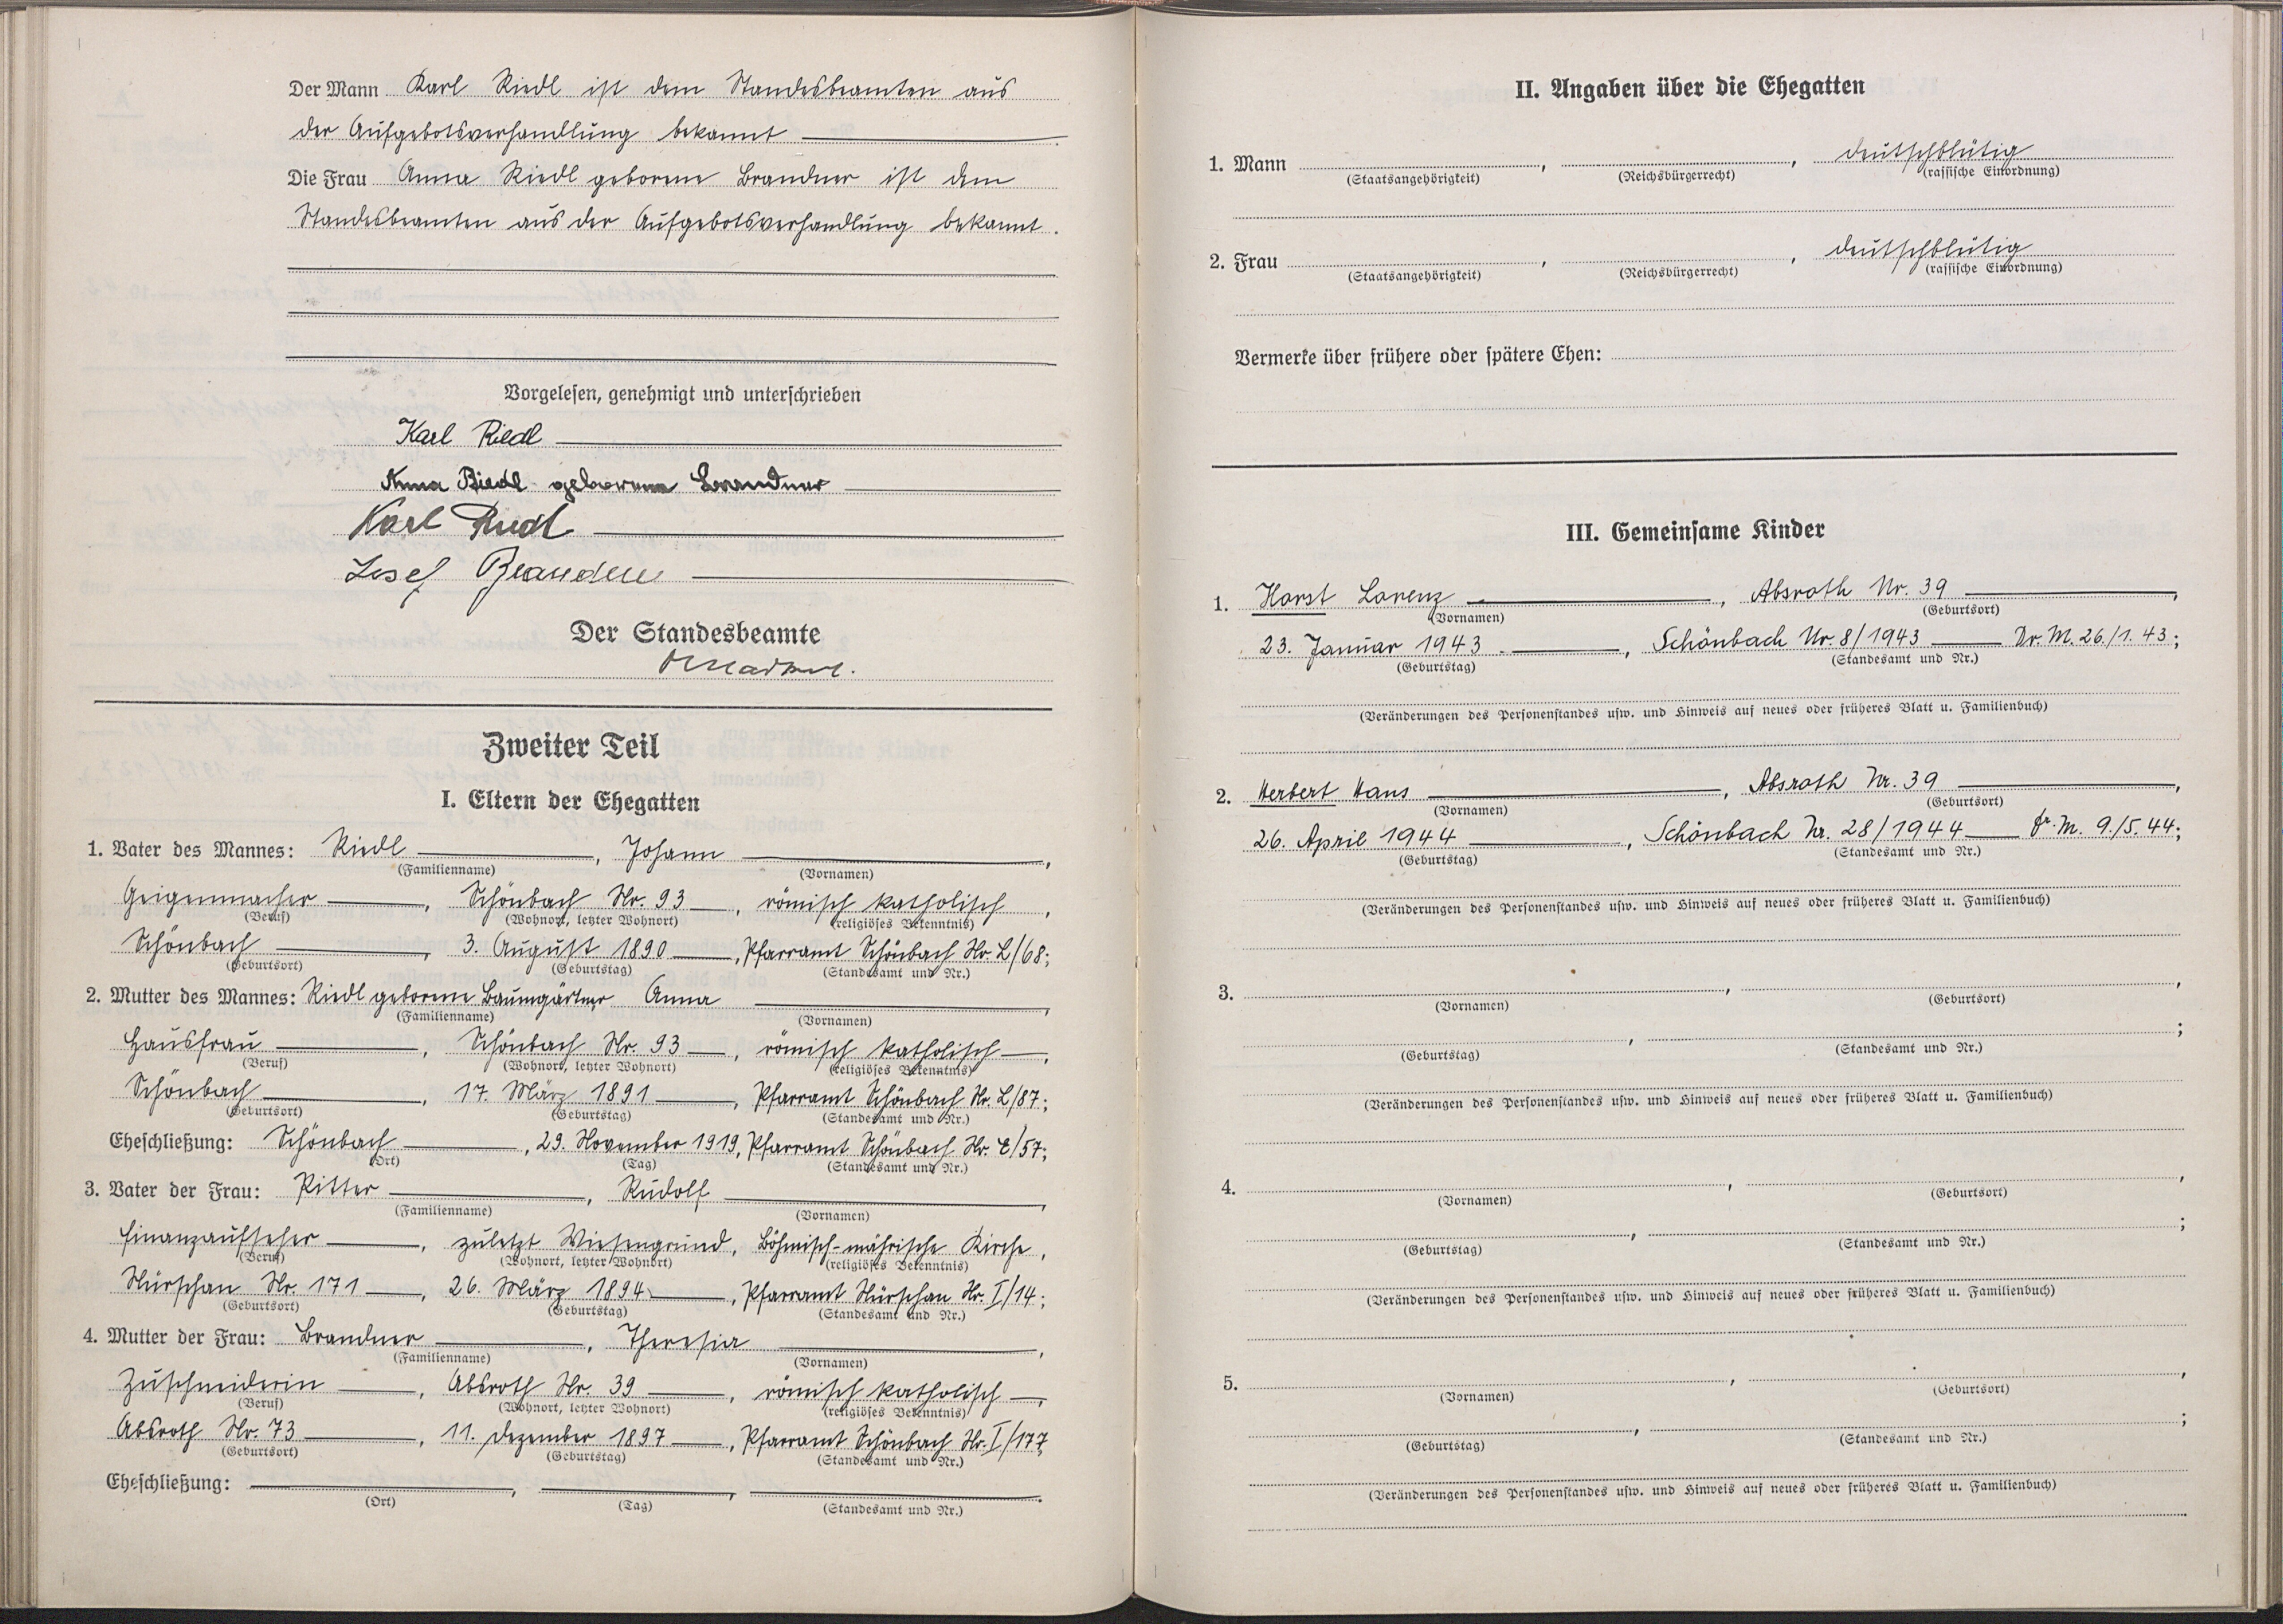 Der Mann Karl Riedl ist dem Standesbeamten aus
der Aufgebotsverhandlung bekannt
Die Frau Anna Riedl geborene Brandner ist dem
Standesbeamten aus der Aufgebotsverhandlung bekannt.
Vorgelesen, genehmigt und unterschrieben
Karl Riedl
Anna Riedl geborene Brandner
Karl Riedl
Josef Brandner
Der Standesbeamte
Zweiter Teil
I. Eltern der Ehegatten
1. Vater des Mannes: Riedl, Johann,
(Familienname) (Vornamen)
Geigenmacher, Schönbach Nr. 93, römisch katholisch,
(Beruf) (Wohnort, letzter Wohnort) (religiöses Bekenntnis)
Schönbach, 3. August 1890, Pfarramt Schönbach Nr. L/68;
(Geburtsort) (Geburtstag) (Standesamt und Nr.)
2. Mutter des Mannes: Riedl geborene Baumgärtner Anna,
(Familienname) (Vornamen)
Hausfrau, Schönbach Nr. 93, römisch katholisch,
(Beruf) (Wohnort, letzter Wohnort) (religiöses Bekenntnis)
Schönbach, 17. März 1891, Pfarramt Schönbach Nr. L/87;
(Geburtsort) (Geburtstag) (Standesamt und Nr.)
Eheschließung: Schönbach, 29. November 1919, Pfarramt Schönbach Nr. E/57;
(Ort) (Tag) (Standesamt und Nr.)
3. Vater der Frau: Ritter, Rudolf,
(Familienname) (Vornamen)
Finanzaufseher, zuletzt Wiesengrund, Böhmisch-mährische Kirche,
(Beruf) (Wohnort, letzter Wohnort) (religiöses Bekenntnis)
Nürschan Nr. 171, 26. März 1894, Pfarramt Nürschan Nr. I/14;
(Geburtsort) (Geburtstag) (Standesamt und Nr.)
4. Mutter der Frau: Brandner, Theresia,
(Familienname) (Vornamen)
Zuschneiderin, Absroth Nr. 39, römisch katholisch,
(Beruf) (Wohnort, letzter Wohnort) (religiöses Bekenntnis)
Absroth Nr. 73, 11. Dezember 1897, Pfarramt Schönbach Nr. I/177
(Geburtsort) (Geburtstag) (Standesamt und Nr.)
Eheschließung: , , .
(Ort) (Tag) (Standesamt und Nr.)
II. Angaben über die Ehegatten
1. Mann , , deutschblütig
(Staatsangehörigkeit) (Reichsbürgerrecht) (rassische Einordnung)
2. Frau , , deutschblütig
(Staatsangehörigkeit) (Reichsbürgerrecht) (rassische Einordnung)
Vermerke über frühere oder spätere Ehen:
III. Gemeinsame Kinder
1. Horst Lorenz, Absroth Nr. 39,
(Vornamen) (Geburtsort)
23. Januar 1943, Schönbach Nr. 8/1943 Dr. M. 26./1. 43;
(Geburtstag) (Standesamt und Nr.)
(Veränderungen des Personenstandes usw. und Hinweis auf neues oder früheres Blatt u. Familienbuch)
2. Herbert Hans, Absroth Nr. 39,
(Vornamen) (Geburtsort)
26. April 1944, Schönbach Nr. 28/1944 Dr. M. 9./5. 44;
(Geburtstag) (Standesamt und Nr.)
(Veränderungen des Personenstandes usw. und Hinweis auf neues oder früheres Blatt u. Familienbuch)
3. , ,
(Vornamen) (Geburtsort)
, ;
(Geburtstag) (Standesamt und Nr.)
(Veränderungen des Personenstandes usw. und Hinweis auf neues oder früheres Blatt u. Familienbuch)
4. , ,
(Vornamen) (Geburtsort)
, ;
(Geburtstag) (Standesamt und Nr.)
(Veränderungen des Personenstandes usw. und Hinweis auf neues oder früheres Blatt u. Familienbuch)
5. , ,
(Vornamen) (Geburtsort)
, ;
(Geburtstag) (Standesamt und Nr.)
(Veränderungen des Personenstandes usw. und Hinweis auf neues oder früheres Blatt u. Familienbuch)